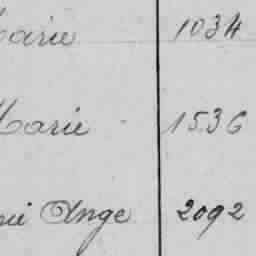 Marie 1034
Marie 1536
Ange 2092